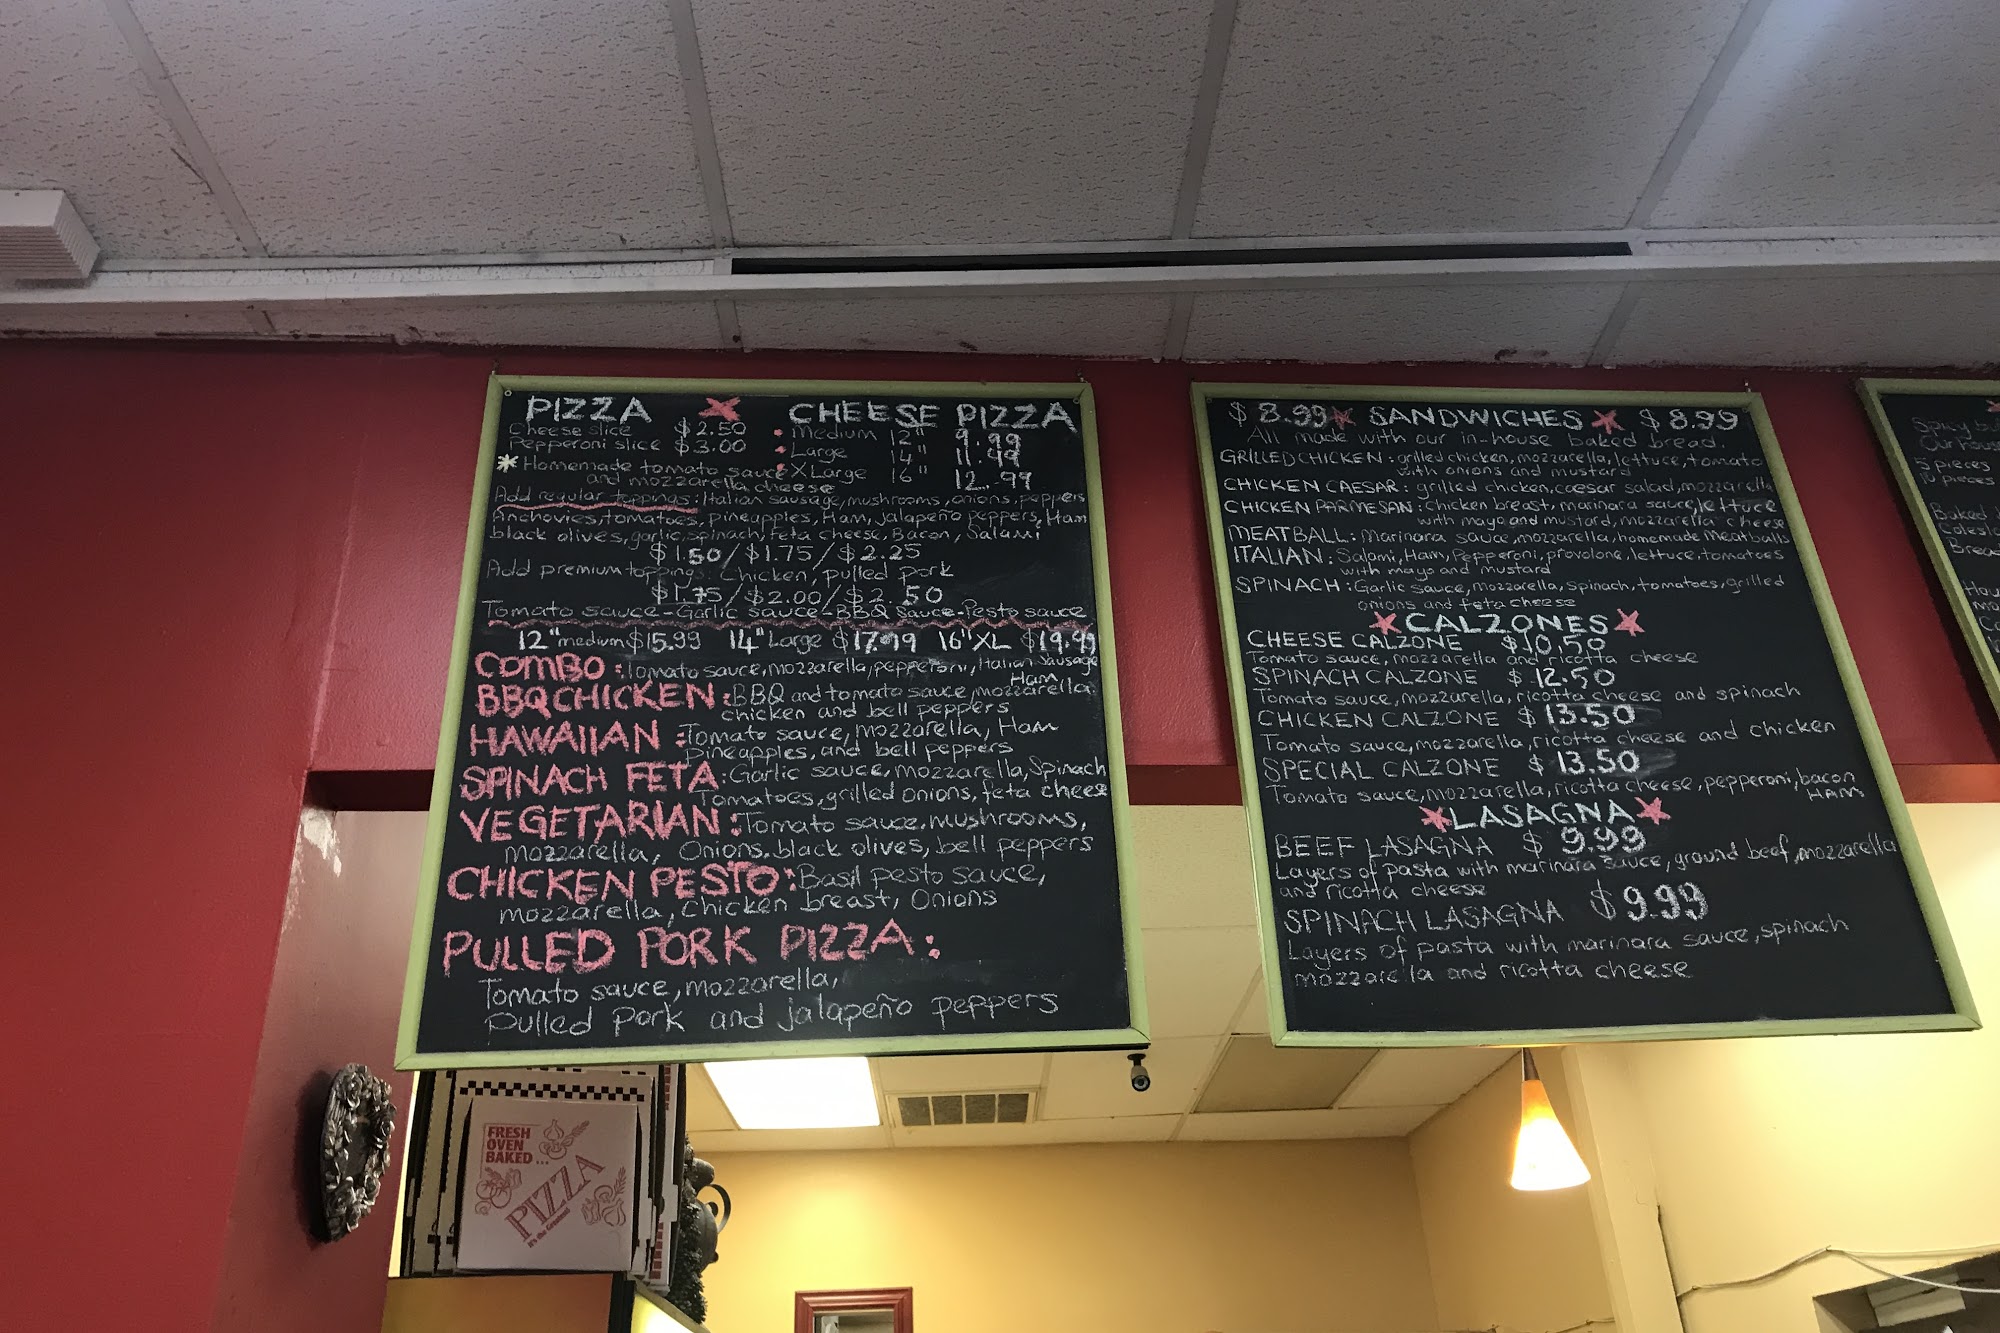 PIZZA
Cheese slice $2.50
Pepperoni slice $3.00
* Homemade tomato sauce
and mozzarella cheese
CHEESE PIZZA
Medium 12" 9.99
Large 14" 11.99
X Large 16" 12.99
Add regular toppings: Italian sausage, mushrooms, onions, peppers
Anchovies, tomatoes, pineapples, Ham, jalapeño peppers, Ham
black olives, garlic, spinach, feta cheese, Bacon, Salami
$1.50/$1.75/$2.25
Add premium toppings: Chicken, pulled pork
$1.75/$2.00/$2.50
Tomato sauce-Garlic sauce-BBQ sauce-Pesto sauce
12" medium $15.99 14" Large $17.99 16" XL $19.99
COMBO: Tomato sauce, mozzarella, pepperoni, Italian sausage
Ham
BBQ CHICKEN: BBQ and tomato sauce, mozzarella
chicken and bell peppers
HAWAIIAN: Tomato sauce, mozzarella, Ham
pineapples, and bell peppers
SPINACH FETA: Garlic sauce, mozzarella, Spinach
Tomatoes, grilled onions, feta cheese
VEGETARIAN: Tomato sauce, mushrooms,
mozzarella, Onions, black olives, bell peppers
CHICKEN PESTO: Basil pesto sauce,
mozzarella, chicken breast, Onions
PULLED PORK PIZZA:
Tomato sauce, mozzarella,
pulled pork and jalapeño peppers
$8.99 SANDWICHES $8.99
All made with our in-house baked bread.
GRILLED CHICKEN: grilled chicken, mozzarella, lettuce, tomato
with onions and mustard
CHICKEN CAESAR: grilled chicken, caesar salad, mozzarella
CHICKEN PARMESAN: chicken breast, marinara sauce, lettuce
with mayo and mustard, mozzarella cheese
MEATBALL: Marinara sauce, mozzarella, homemade meatballs
ITALIAN: Salami, Ham, Pepperoni, provolone, lettuce, tomatoes
with mayo and mustard
SPINACH: Garlic sauce, mozzarella, spinach, tomatoes, grilled
onions and feta cheese
CALZONES
CHEESE CALZONE $10.50
Tomato sauce, mozzarella and ricotta cheese
SPINACH CALZONE $12.50
Tomato sauce, mozzarella, ricotta cheese and spinach
CHICKEN CALZONE $13.50
Tomato sauce, mozzarella, ricotta cheese and chicken
SPECIAL CALZONE $13.50
Tomato sauce, mozzarella, ricotta cheese, pepperoni, bacon
HAM
LASAGNA
BEEF LASAGNA $9.99
Layers of pasta with marinara sauce, ground beef, mozzarella
and ricotta cheese
SPINACH LASAGNA $9.99
Layers of pasta with marinara sauce, spinach
mozzarella and ricotta cheese
Spicy
Our
5 pieces
10 pieces
Baked
Coles
Bread
FRESH
OVEN
BAKED...
PIZZA
It's the Greatest!